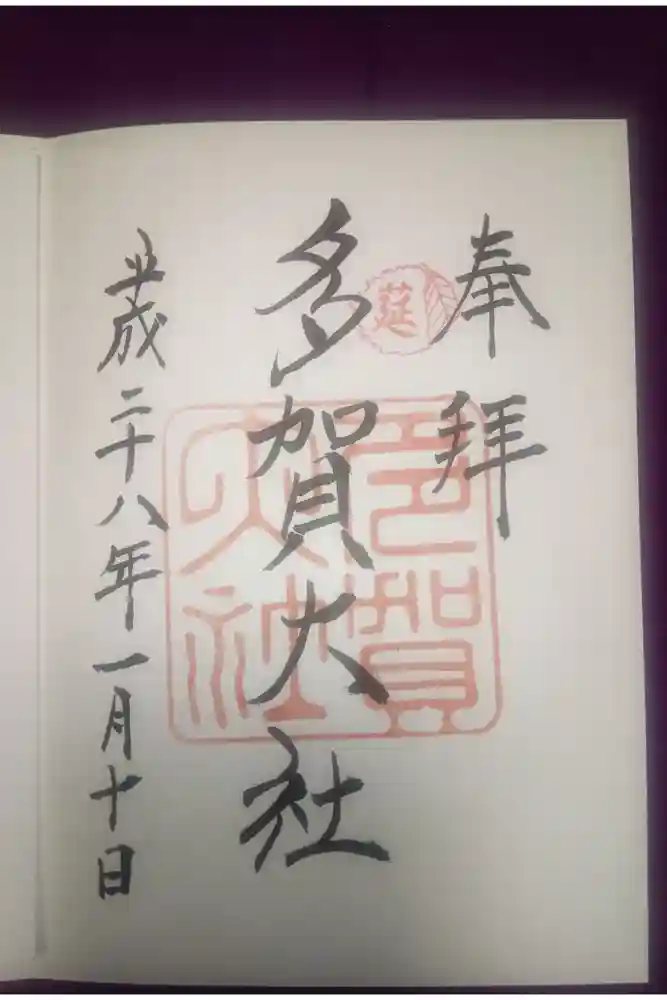 奉拝
莚
多賀大社
多賀大社
平成二十八年一月十日